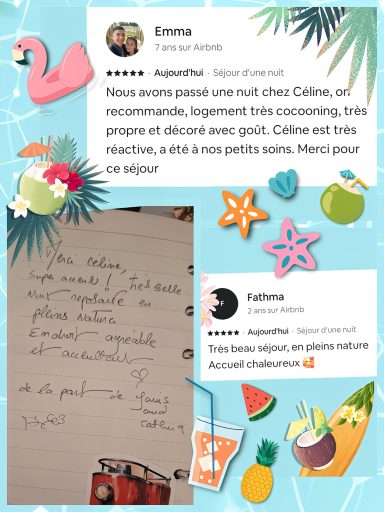 Emma
7 ans sur Airbnb
★★★★★ · Aujourd'hui · Séjour d'une nuit
Nous avons passé une nuit chez Céline, on
recommande, logement très cocooning, très
propre et décoré avec goût. Céline est très
réactive, a été à nos petits soins. Merci pour
ce séjour
Merci Céline,
Super accueil ! très belle
Nuit reposante en
pleins Nature
Endroit agréable
et accueillant
de la part de
and
Fathma
F
Fathma
2 ans sur Airbnb
★★★★★ · Aujourd'hui · Séjour d'une nuit
Très beau séjour, en pleins nature
Accueil chaleureux 🥰